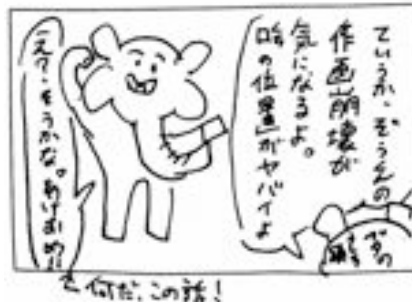 ていうか、ぞうくんの
作画崩壊が
気になるよ。
「口の位置」がヤバイよ
えっ・そうかな。あけおめ!!
カバの
頭
と何だ、この話!